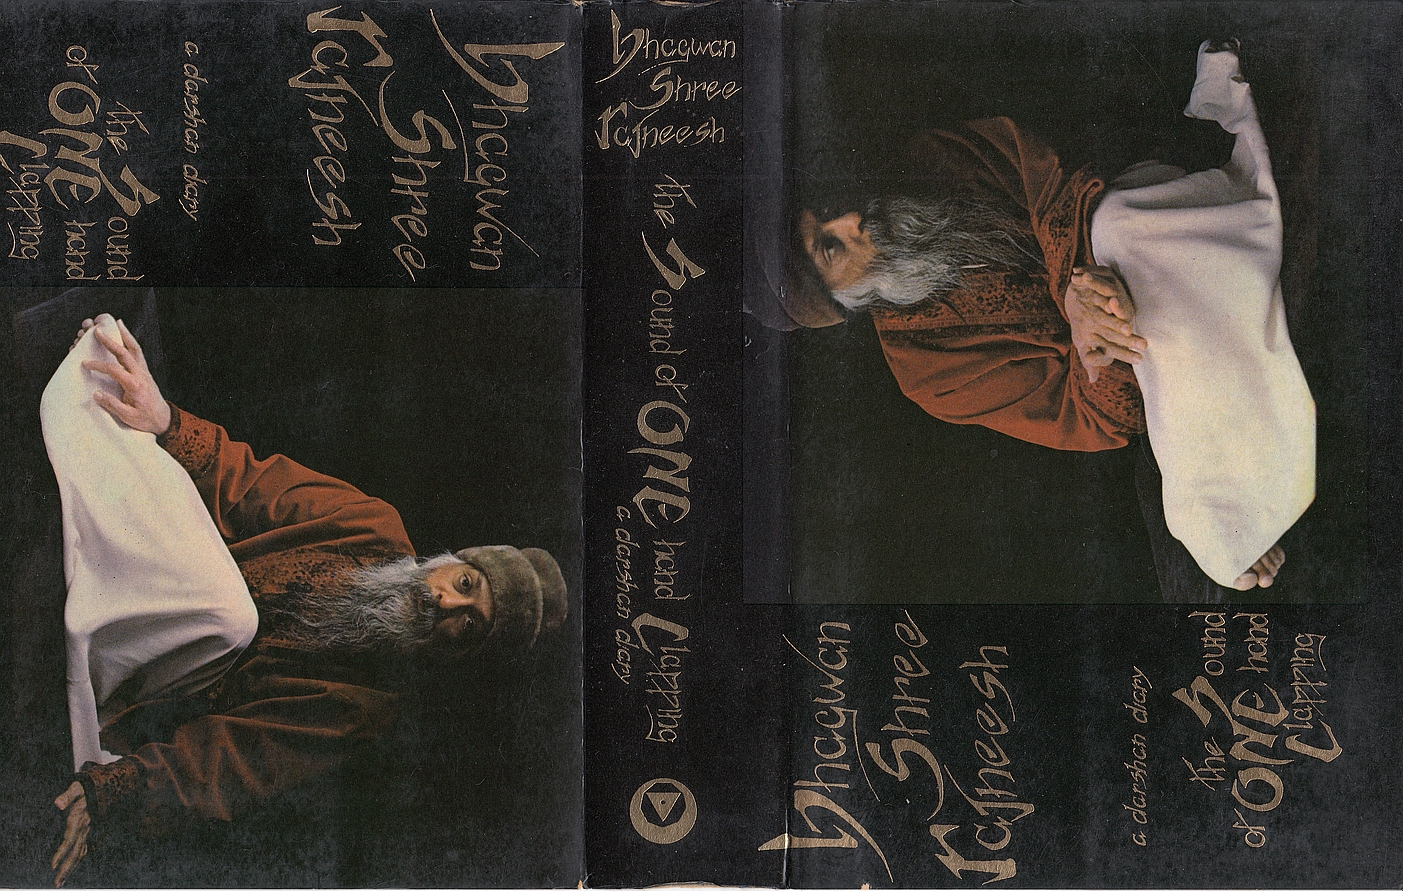 bhagwan
Shree
rajneesh
a darshan diary
the Sound
of ONE hand
Clapping
bhagwan
Shree
rajneesh
the Sound of ONE hand Clapping
a darshan diary
bhagwan
Shree
rajneesh
a darshan diary
the Sound
of ONE hand
Clapping